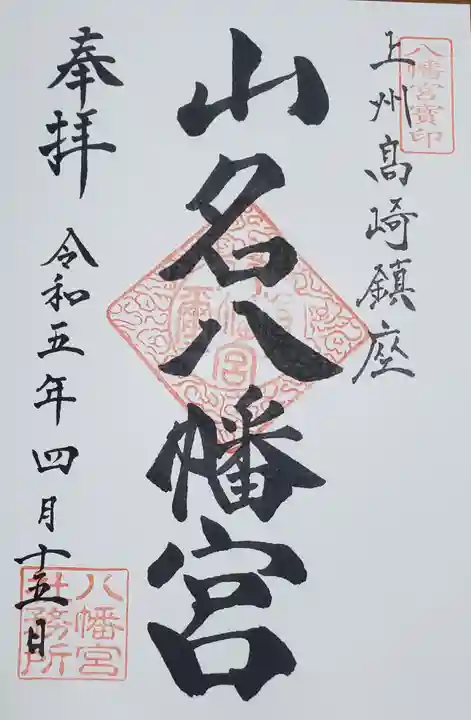 八幡宮寳印
上州高崎鎮座
山名八幡宮
奉拝
令和五年四月十五日
八幡宮
社務所